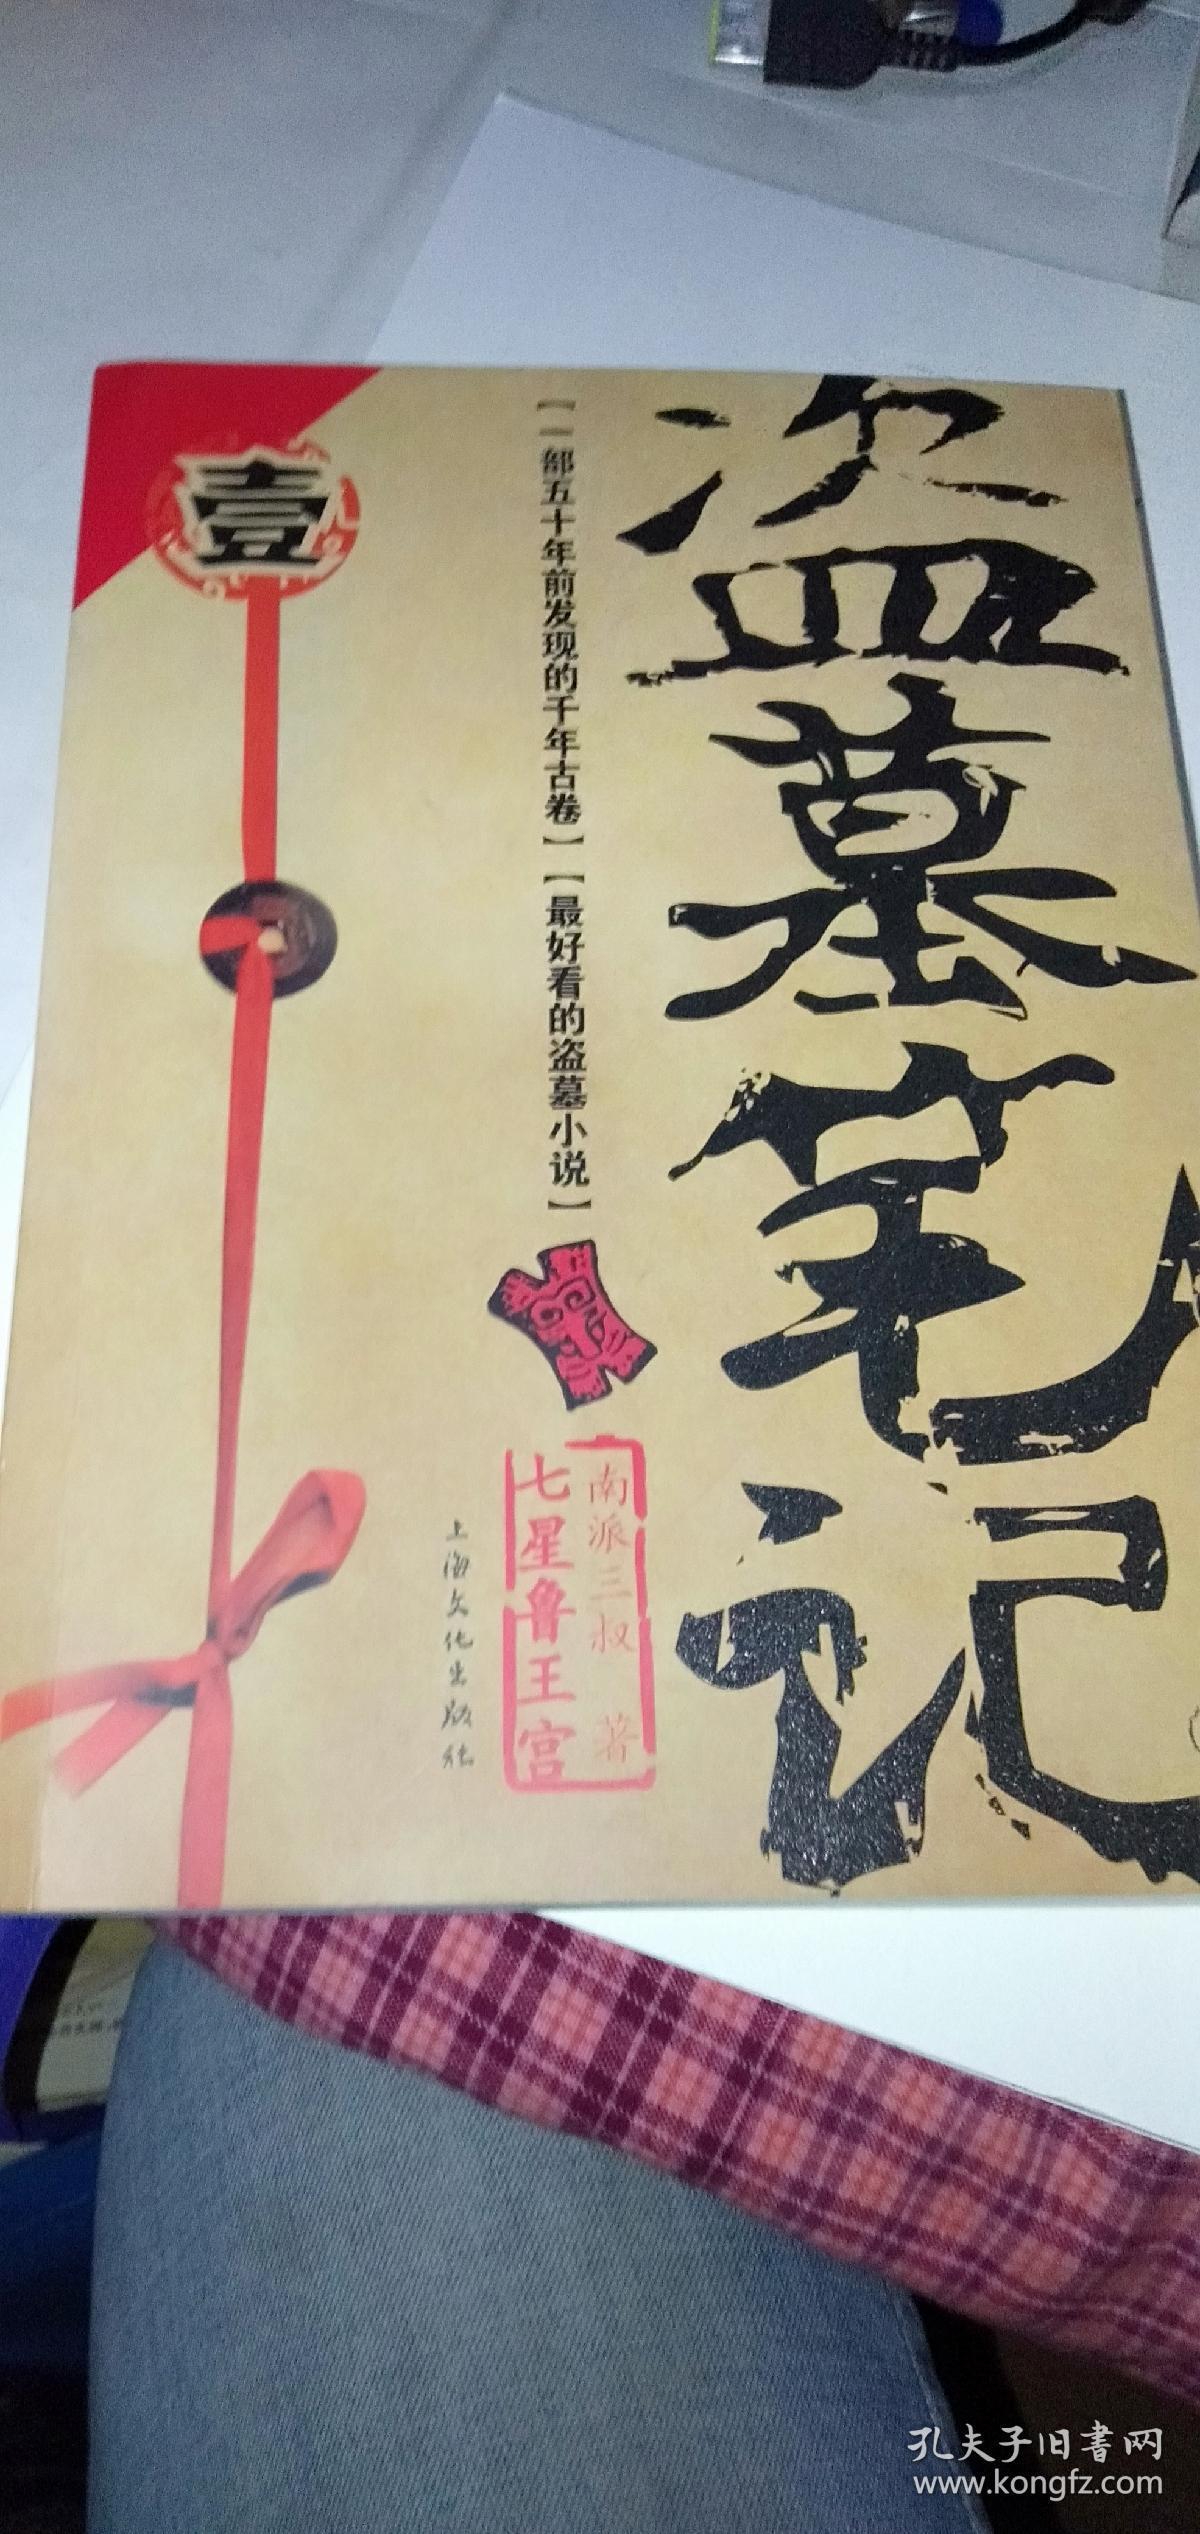 盗墓笔记
【一部五十年前发现的千年古卷】【最好看的盗墓小说】
壹
南派三叔 著
七星鲁王宫
上海文化出版社
孔夫子旧書网
www.kongfz.com